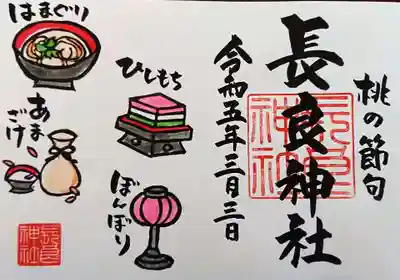 桃の節句
長良神社
令和五年三月三日
はまぐり
ひしもち
あま
ざけ
ぼんぼり
長良
神社
長良
神社